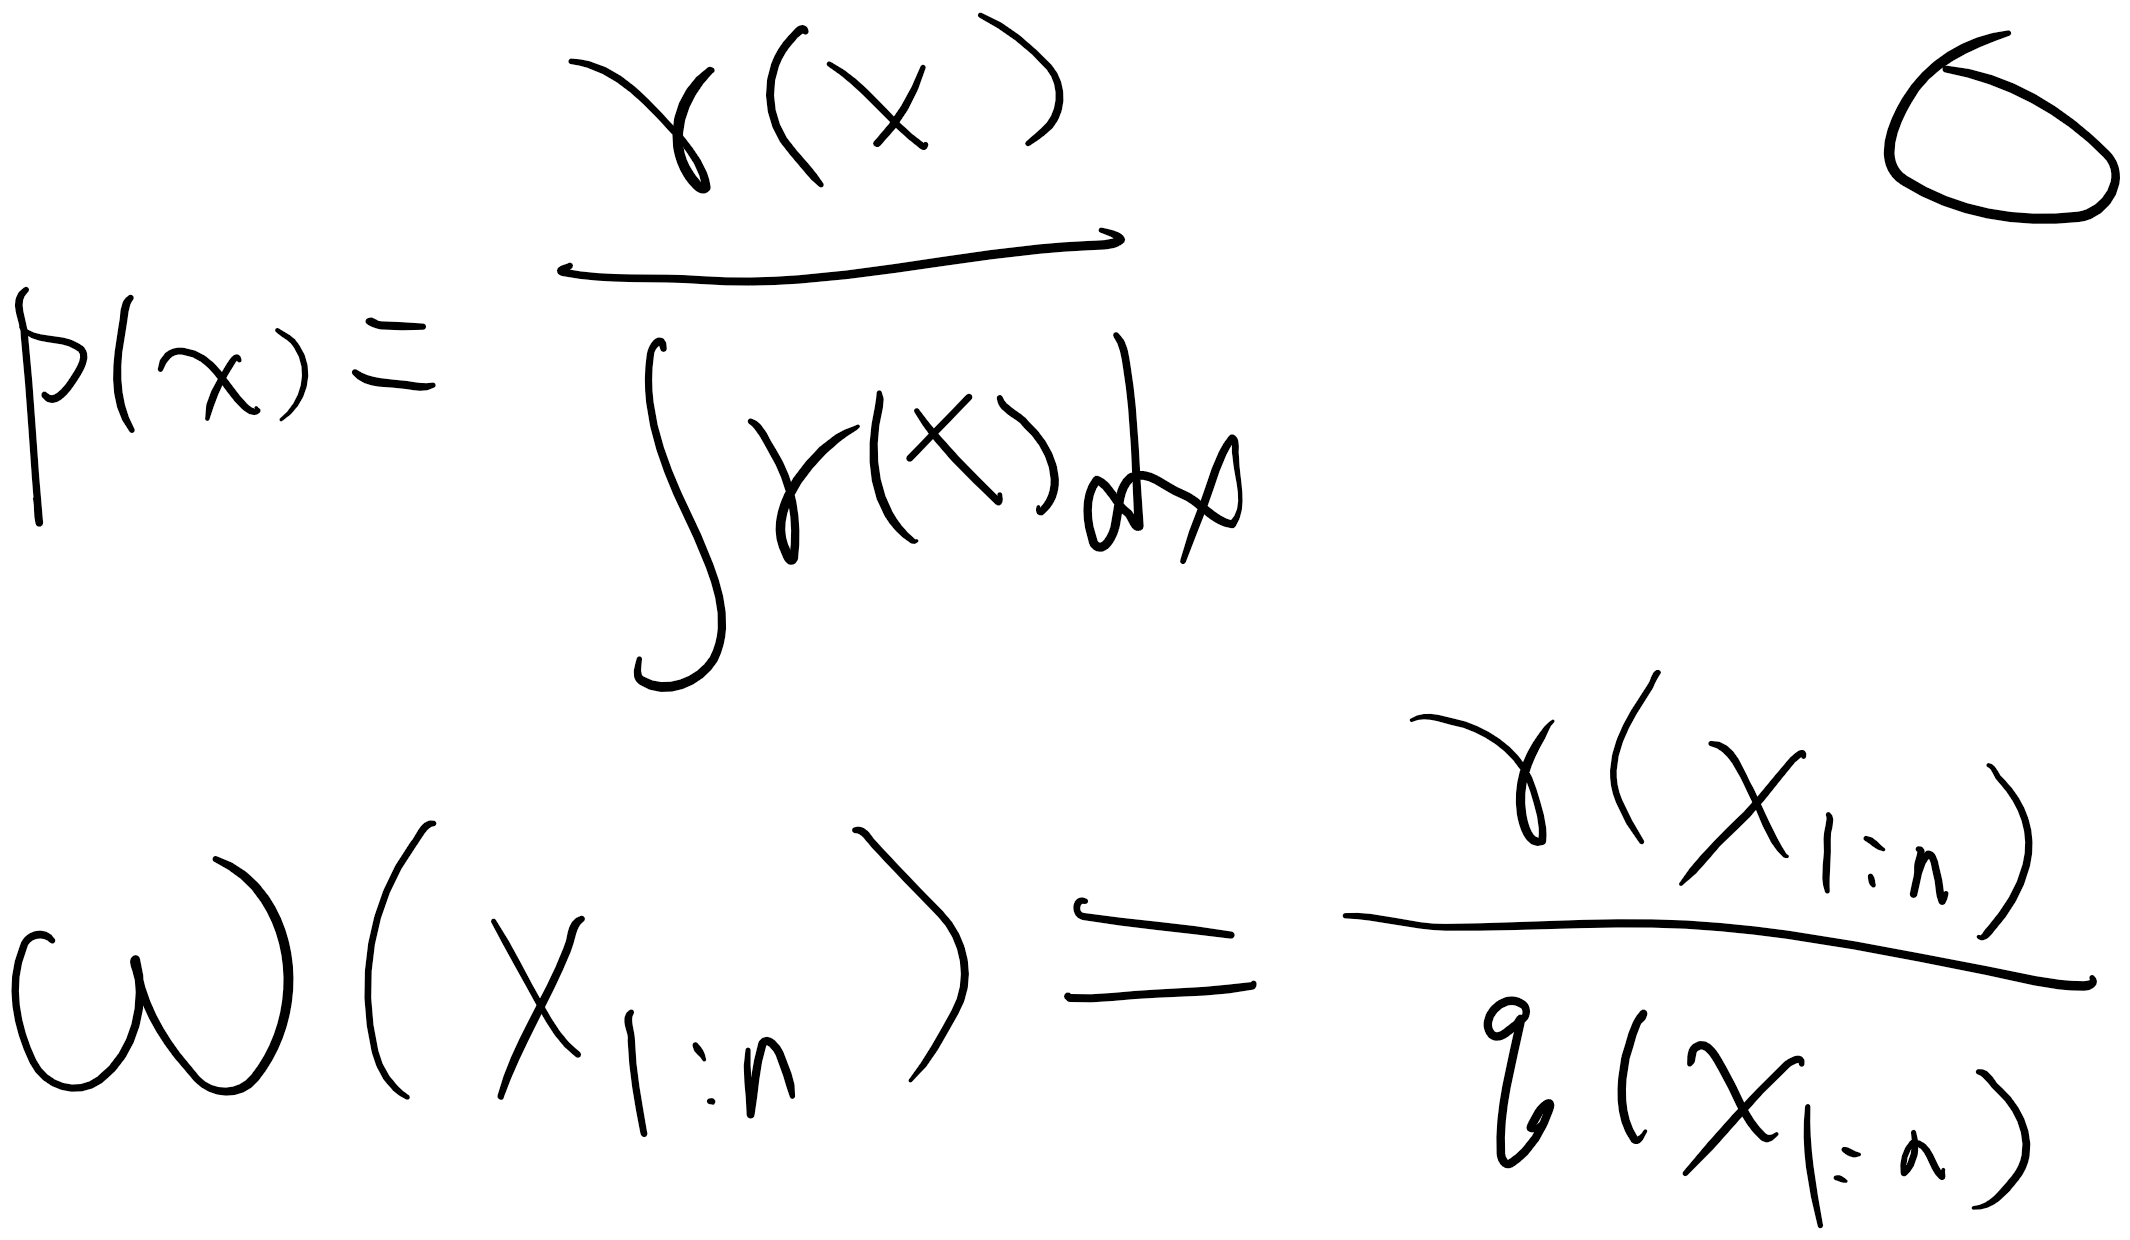 p(x) = γ(x) / ∫γ(x)dx
6
ω(x₁:ₙ) = γ(x₁:ₙ) / q(x₁:ₙ)